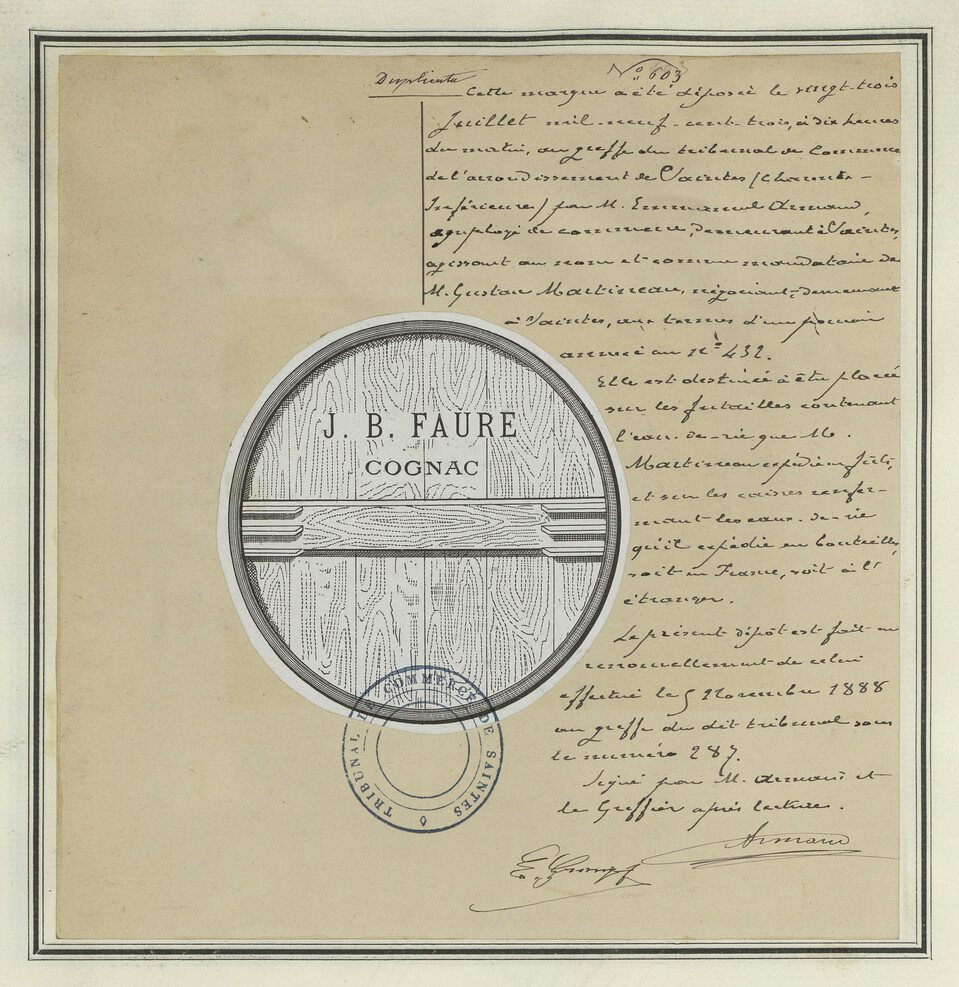 Duplicata
N° 603
Cette marque a été déposée le vingt-trois
Juillet mil-neuf-cent-trois, à dix heures
du matin, au greffe du tribunal de Commerce
de l'arrondissement de Saintes (Charente-
Inférieure) par M. Emmanuel Armand,
employé de commerce, demeurant à Saintes,
agissant au nom et comme mandataire de
M. Gustave Martineau, négociant, demeurant
à Saintes, aux termes d'un pouvoir
annexé au n° 432.
Elle est destinée à être placée
sur les futailles contenant
l'eau-de-vie que M.
Martineau expédie en fûts,
et sur les caisses renfer-
mant les eaux-de-vie
qu'il expédie en bouteilles,
soit en France, soit à l'
étranger.
Le présent dépôt est fait en
renouvellement de celui
effectué le 5 Novembre 1888
au greffe du dit tribunal sous
le numéro 287.
Signé par M. Armand et
le Greffier après lecture.
Armand
J. B. FAURE
COGNAC
TRIBUNAL DE COMMERCE DE SAINTES